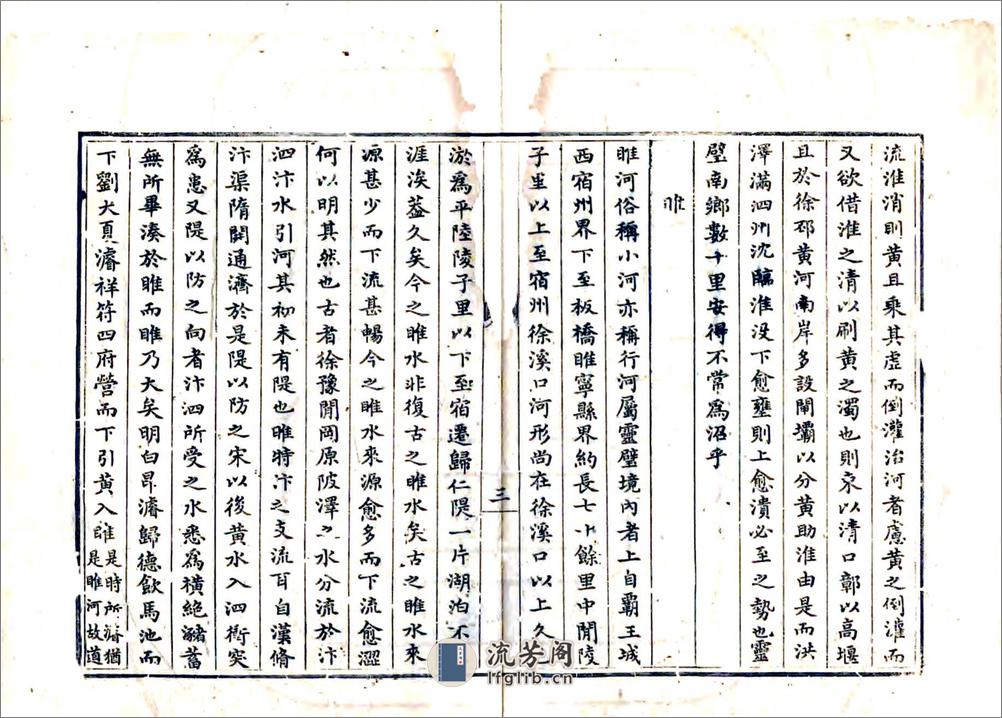 流淮消則黃且乘其虛而倒灌治河者慮黃之倒灌而
又欲借淮之清以刷黃之濁也則束以清口鄣以高堰
且於徐邳黃河南岸多設閘壩以分黃助淮由是而洪
澤滿泗州沈臨淮沒下愈壅則上愈潰必至之勢也靈
壁南鄉數十里安得不常為沼乎
睢
睢河俗稱小河亦稱行河屬靈壁境內者上自霸王城
西宿州界下至板橋睢寧縣界約長七十餘里中間陵
子里以上至宿州徐溪口河形尚在徐溪口以上久
三
淤為平陸陵子里以下至宿遷歸仁隄一片湖泊不
涯涘葢久矣今之睢水非復古之睢水矣古之睢水來
源甚少而下流甚暢今之睢水來源愈多而下流愈澀
何以明其然也古者徐豫閒岡原陂澤之水分流於汴
泗汴水引河其初未有隄也睢特汴之支流耳自漢脩
汴渠隋開通濟於是隄以防之宋以後黃水入泗衝突
為患又隄以防之向者汴泗所受之水悉為橫絕瀦蓄
無所畢湊於睢而睢乃大矣明白昂濬歸德飲馬池而
下劉大夏濬祥符四府營而下引黃入睢是時所濬猶是睢河故道
流芳阁
lfglib.cn